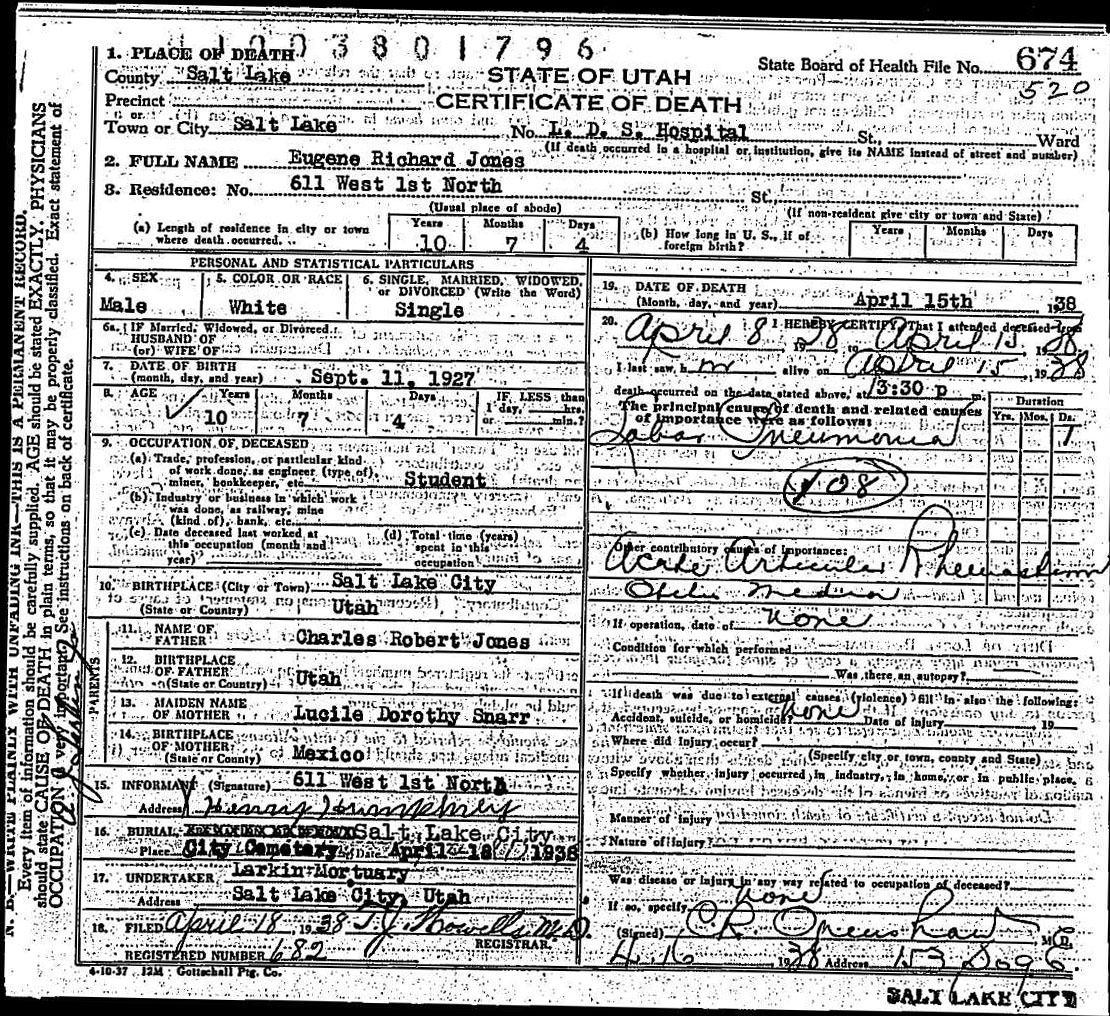 1003801796
1. PLACE OF DEATH
County Salt Lake
STATE OF UTAH
State Board of Health File No. 674
520
Precinct
CERTIFICATE OF DEATH
or
Town or City Salt Lake No. L. D. S. Hospital St., Ward
(If death occurred in a hospital or institution, give its NAME instead of street and number)
2. FULL NAME Eugene Richard Jones
3. Residence: No. 611 West 1st North St.,
(Usual place of abode)
(If non-resident give city or town and State)
(a) Length of residence in city or town where death occurred. Years 10 Months 7 Days 4
(b) How long in U. S., if of foreign birth? Years Months Days
PERSONAL AND STATISTICAL PARTICULARS
4. SEX Male
5. COLOR OR RACE White
6. SINGLE, MARRIED, WIDOWED, or DIVORCED (Write the Word) Single
6a. IF Married, Widowed, or Divorced
HUSBAND OF
(or) WIFE OF
7. DATE OF BIRTH
(month, day, and year) Sept. 11, 1927
8. AGE Years 10 Months 7 Days 4 IF LESS than 1 day, hrs. or min.?
9. OCCUPATION OF DECEASED
(a) Trade, profession, or particular kind of work done, as engineer (type of), miner, bookkeeper, etc. Student
(b) Industry or business in which work was done, as railway, mine (kind of), bank, etc.
(c) Date deceased last worked at this occupation (month and year)
(d) Total time (years) spent in this occupation
10. BIRTHPLACE (City or Town) Salt Lake City
(State or Country) Utah
PARENTS
11. NAME OF FATHER Charles Robert Jones
12. BIRTHPLACE OF FATHER
(State or Country) Utah
13. MAIDEN NAME OF MOTHER Lucile Dorothy Snarr
14. BIRTHPLACE OF MOTHER
(State or County) Mexico
15. INFORMANT (Signature) 611 West 1st North
Address Henry Humphrey
16. BURIAL Salt Lake City
Place City Cemetery Date April 18 1938
17. UNDERTAKER Larkin Mortuary
Address Salt Lake City, Utah
18. FILED April 18 1938 T.J. Howells M.D.
REGISTRAR.
REGISTERED NUMBER 682
4-10-37 12M Gottschall Ptg. Co.
19. DATE OF DEATH
(Month, day, and year) April 15th 1938
20. I HEREBY CERTIFY, That I attended deceased from
April 8 1938 to April 15 1938
I last saw h m alive on April 15, 1938
death occurred on the date stated above, at 3:30 p m.
The principal cause of death and related causes of importance were as follows:
Duration
Yrs. Mos. Ds.
Lobar Pneumonia 7
108
Other contributory causes of importance:
Acute Articular Rheumatism
Otitis Media
If operation, date of None
Condition for which performed
Was there an autopsy?
If death was due to external causes (violence) fill in also the following:
Accident, suicide, or homicide? None Date of injury 19
Where did injury occur?
(Specify city or town, county and State)
Specify whether injury occurred in industry, in home, or in public place,
Manner of injury
Nature of injury?
Was disease or injury in any way related to occupation of deceased?
If so, specify None
(Signed) C.R. Openshaw M.D.
4.16 1938 Address
SALT LAKE CITY
N. B.—WRITE PLAINLY WITH UNFADING INK—THIS IS A PERMANENT RECORD.
Every item of information should be carefully supplied. AGE should be stated EXACTLY. PHYSICIANS
should state CAUSE OF DEATH in plain terms, so that it may be properly classified. Exact statement of
OCCUPATION is very important. See instructions on back of certificate.